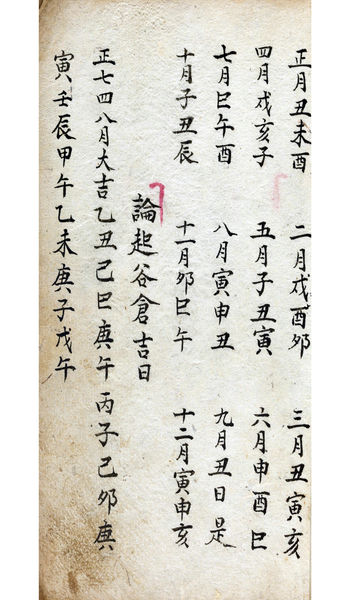 正月丑未酉　二月戌酉卯　三月丑寅亥
四月戌亥子　五月子丑寅　六月申酉巳
七月巳午酉　八月寅申丑　九月丑日是
十月子丑辰　十一月卯巳午　十二月寅申亥
論起谷倉吉日
正七四八月大吉乙丑己巳庚午丙子己卯庚
寅壬辰甲午乙未庚子戊午